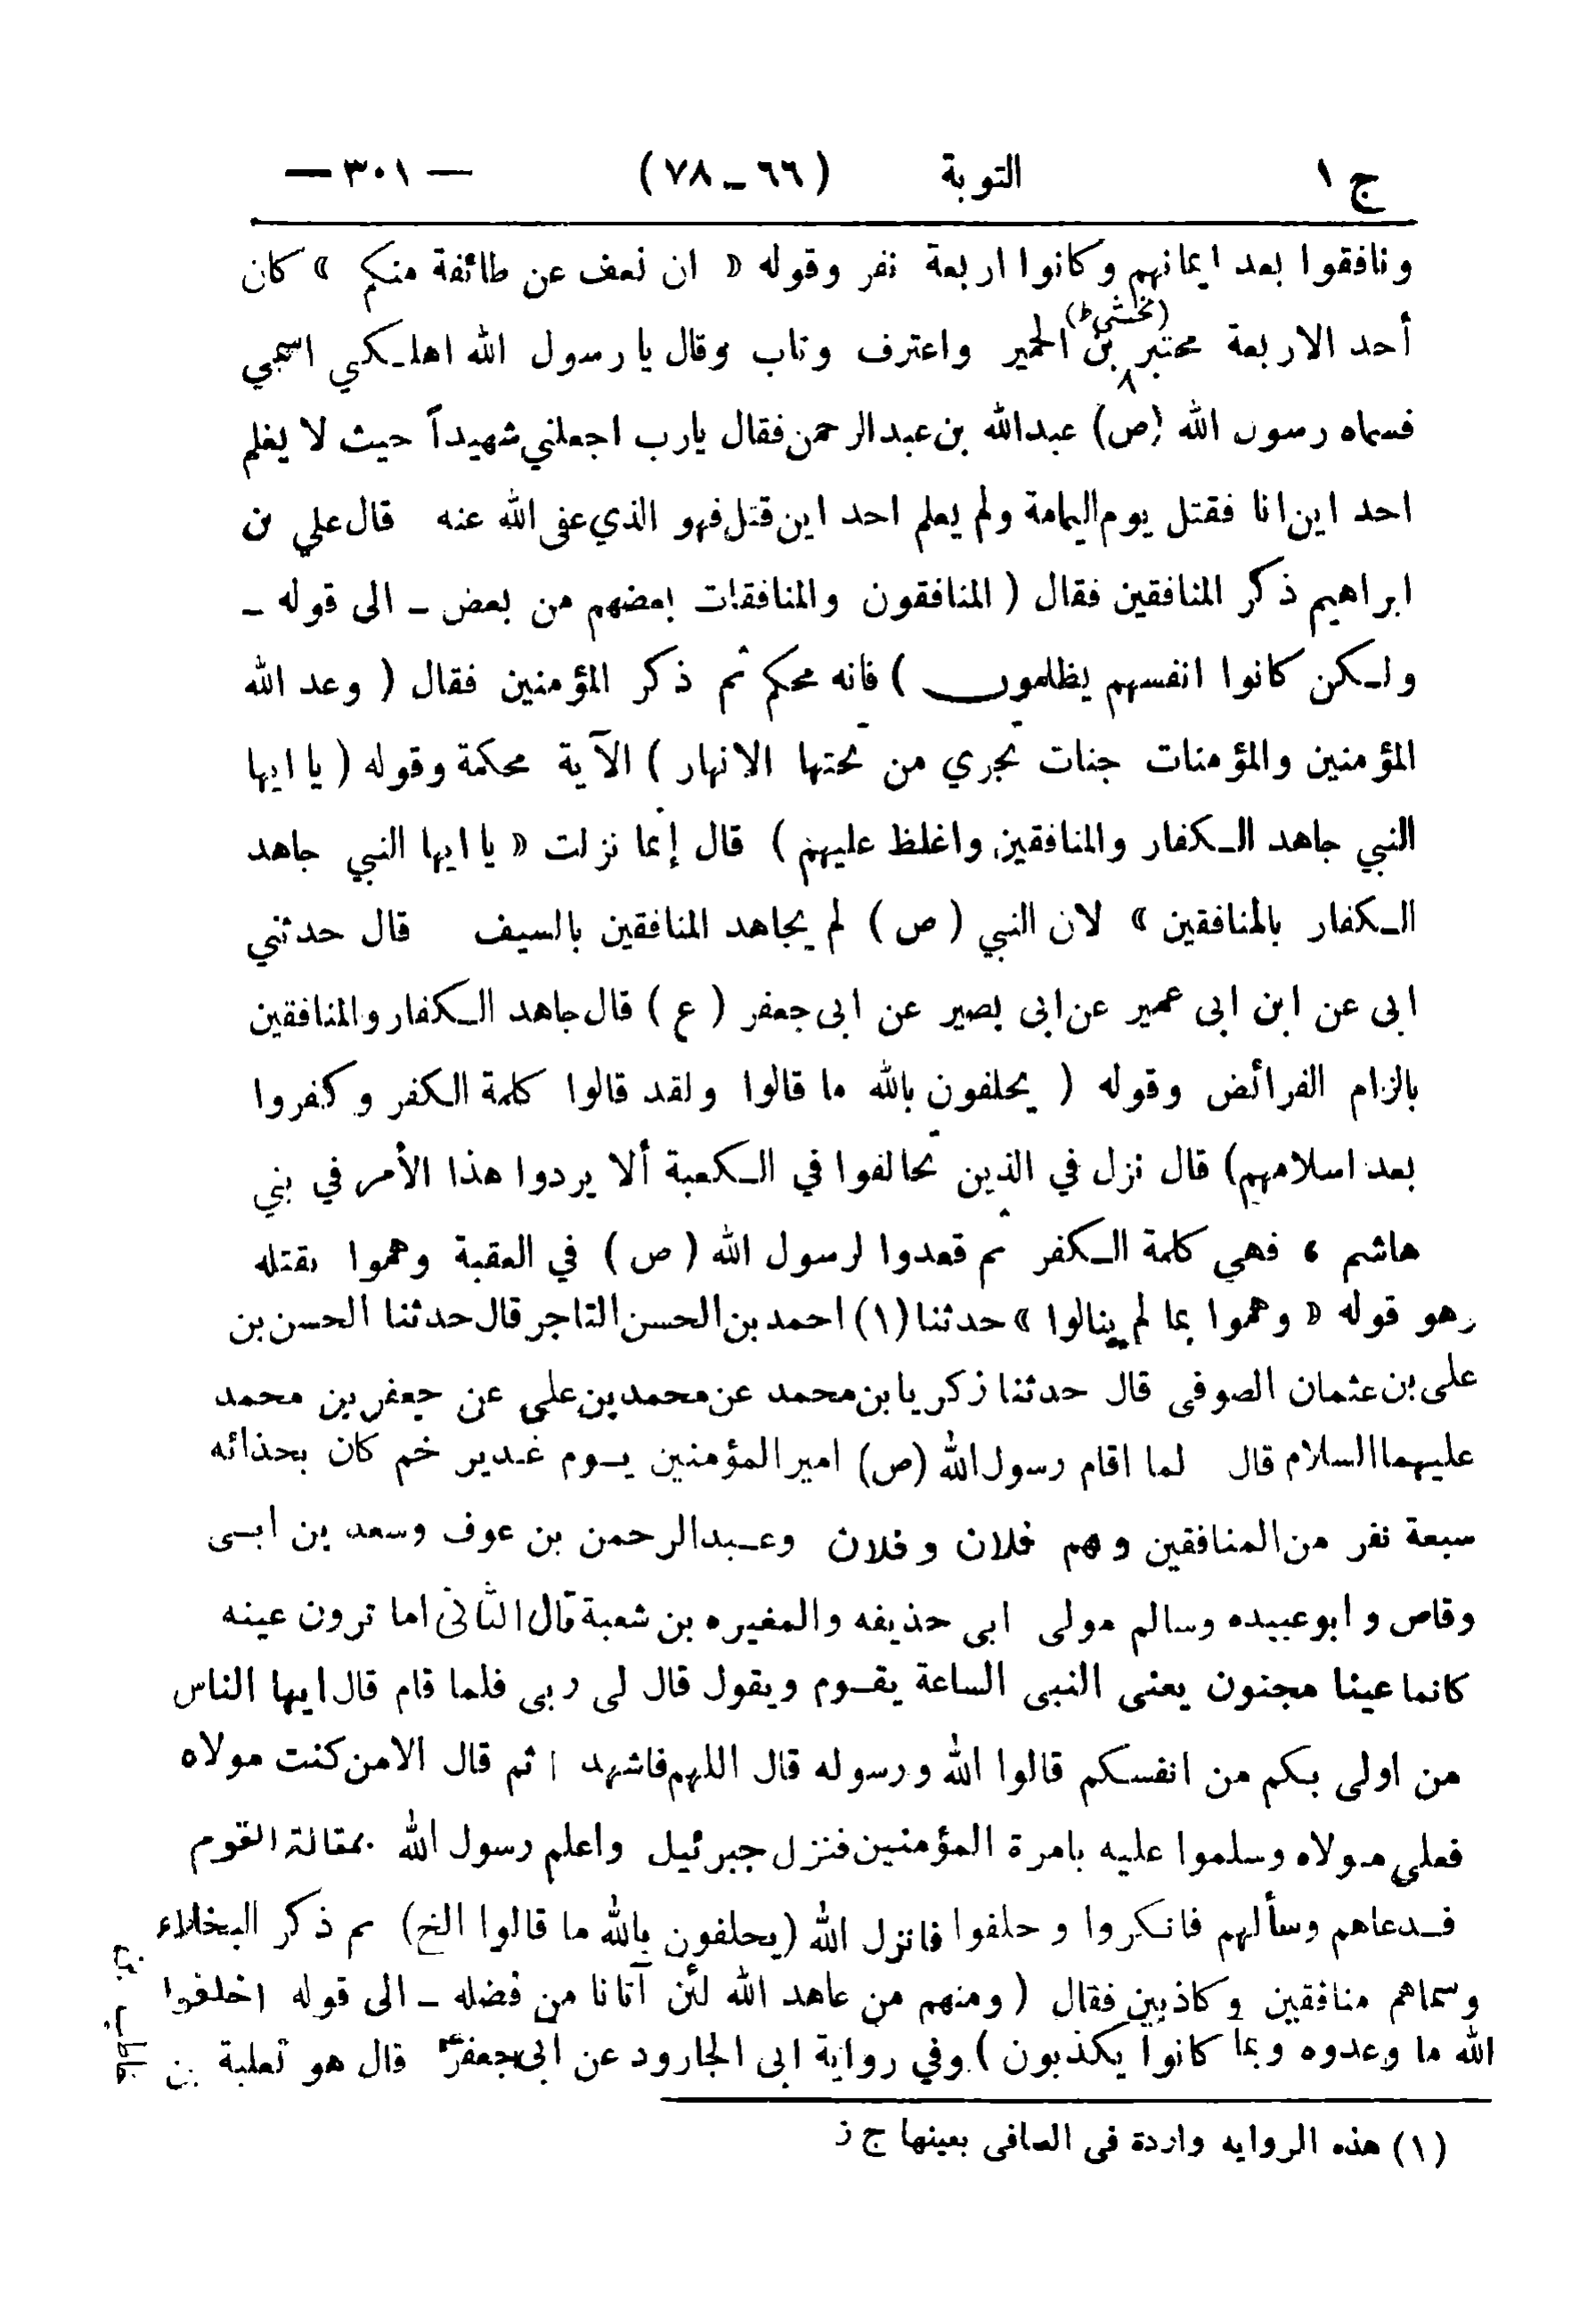 ج ١ التوبة (٦٦ــ٧٨) — ٣٠١ —
ونافقوا بعد ايمانهم وكانوا اربعة نفر وقوله « ان نعف عن طائفة منكم » كان
(مخشي ظ)
أحد الاربعة محتبر بن الحمير واعترف وتاب وقال يا رسول الله اهلكني اسمي
فسماه رسول الله (ص) عبدالله بن عبدالرحمن فقال يارب اجعلني شهيداً حيث لا يعلم
احد اين انا فقتل يوم اليمامة ولم يعلم احد اين قتل فهو الذي عفى الله عنه قال علي بن
ابراهيم ذكر المنافقين فقال ( المنافقون والمنافقات بعضهم من بعض ـ الى قوله ـ
ولـكن كانوا انفسهم يظلمون ) فانه محكم ثم ذكر المؤمنين فقال ( وعد الله
المؤمنين والمؤمنات جنات تجري من تحتها الانهار ) الآية محكمة وقوله ( يا ايها
النبي جاهد الـكفار والمنافقين واغلظ عليهم ) قال إنما نزلت « يا ايها النبي جاهد
الـكفار بالمنافقين » لان النبي ( ص ) لم يجاهد المنافقين بالسيف قال حدثني
ابى عن ابن ابى عمير عن ابى بصير عن ابى جعفر ( ع ) قال جاهد الـكفار والمنافقين
بالزام الفرائض وقوله ( يحلفون بالله ما قالوا ولقد قالوا كلمة الـكفر وكفروا
بعد اسلامهم) قال نزل في الذين تحالفوا في الـكعبة ألا يردوا هذا الأمر في بني
هاشم ، فهي كلمة الـكفر ثم قعدوا لرسول الله ( ص ) في العقبة وهموا بقتله
وهو قوله « وهموا بما لم ينالوا » حدثنا (١) احمد بن الحسن التاجر قال حدثنا الحسن بن
على بن عثمان الصوفى قال حدثنا زكريا بن محمد عن محمد بن على عن جعفر بن محمد
عليهما السلام قال لما اقام رسول الله (ص) امير المؤمنين يـوم غـدير خم كان بحذائه
سبعة نفر من المنافقين وهم فلان وفلان وعـبدالرحمن بن عوف وسعد بن ابـى
وقاص و ابوعبيده وسالم مولى ابى حذيفه والمغيره بن شعبة قال الثانى اما ترون عينه
كانما عينا مجنون يعنى النبى الساعة يقـوم ويقول قال لى ربى فلما قام قال ايها الناس
من اولى بكم من انفسكم قالوا الله ورسوله قال اللهم فاشهد ثم قال الا من كنت مولاه
فعلى مـولاه وسلموا عليه بامرة المؤمنين فنزل جبرئيل واعلم رسول الله بمقالة القوم
فـدعاهم وسألهم فانكروا و حلفوا فانزل الله (يحلفون بالله ما قالوا الخ) ثم ذكر البخلاء
وسماهم منافقين وكاذبين فقال ( ومنهم من عاهد الله لئن آتانا من فضله ـ الى قوله اخلفوا
الله ما وعدوه وبما كانوا يكذبون ) وفي رواية ابى الجارود عن ابى جعفر ع قال هو ثعلبة بن
حاطب بن
(١) هذه الروايه واردة فى الصافى بعينها ج ز